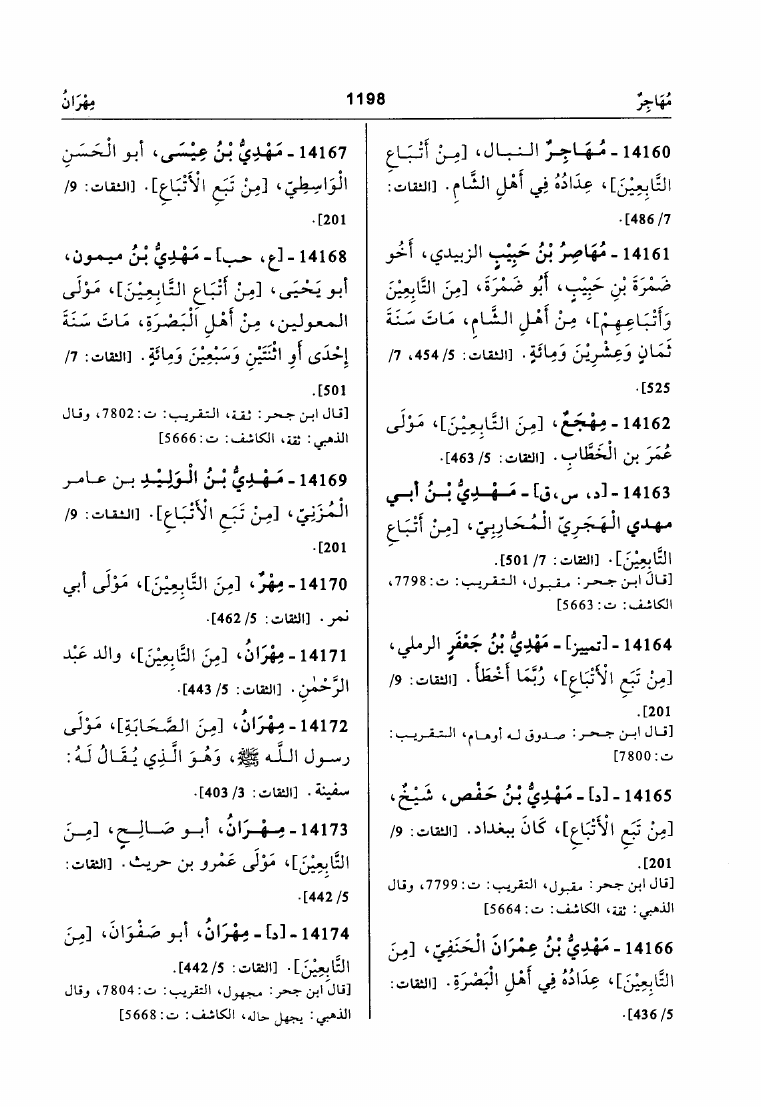 مُهَاجِرٌ 1198 مِهْرَانُ
14160 - مُهَاجِرٌ النبال، [مِنْ أَتْبَاعِ
التَّابِعِيْنَ]، عِدَادُهُ فِي أَهْلِ الشَّامِ. [الثقات:
7/ 486].
14161 - مُهَاصِرُ بْنُ حَبِيْبٍ الزبيدي، أَخُو
ضَمْرَةَ بْنِ حَبِيْبٍ، أَبُو ضَمْرَةَ، [مِنَ التَّابِعِيْنَ
وَأَتْبَاعِهِمْ]، مِنْ أَهْلِ الشَّامِ، مَاتَ سَنَةَ
ثَمَانٍ وَعِشْرِيْنَ وَمِائَةٍ. [الثقات: 5/ 454، 7/
525].
14162 - مِهْجَعٌ، [مِنَ التَّابِعِيْنَ]، مَوْلَى
عُمَرَ بن الْخَطَّابِ. [الثقات: 5/ 463].
14163 - [د، س، ق] - مَهْدِيُّ بْنُ أبي
مهدي الْهَجَرِيّ الْمُحَارِبِيّ، [مِنْ أَتْبَاعِ
التَّابِعِيْنَ]. [الثقات: 7/ 501].
[قال ابن حجر: مقبول، التقريب: ت: 7798،
الكاشف: ت: 5663]
14164 - [تمييز] - مَهْدِيُّ بْنُ جَعْفَرٍ الرملي،
[مِنْ تَبَعِ الْأَتْبَاعِ]، رُبَّمَا أَخْطَأَ. [الثقات: 9/
201].
[قال ابن حجر: صدوق له أوهام، التقريب:
ت: 7800]
14165 - [د] - مَهْدِيُّ بْنُ حَفْص، شَيْخٌ،
[مِنْ تَبَعِ الْأَتْبَاعِ]، كَانَ ببغداد. [الثقات: 9/
201].
[قال ابن حجر: مقبول، التقريب: ت: 7799، وقال
الذهبي: ثقة، الكاشف: ت: 5664]
14166 - مَهْدِيُّ بْنُ عِمْرَانَ الْحَنَفِيّ، [مِنَ
التَّابِعِيْنَ]، عِدَادُهُ فِي أَهْلِ الْبَصْرَةِ. [الثقات:
5/ 436].
14167 - مَهْدِيُّ بْنُ عِيْسَى، أبو الْحَسَنِ
الْوَاسِطِيّ، [مِنْ تَبَعِ الْأَتْبَاعِ]. [الثقات: 9/
201].
14168 - [ع، حب] - مَهْدِيُّ بْنُ ميمون،
أبو يَحْيَى، [مِنْ أَتْبَاعِ التَّابِعِيْنَ]، مَوْلَى
المعولين، مِنْ أَهْلِ الْبَصْرَةِ، مَاتَ سَنَةَ
إِحْدَى أو اثْنَتَيْنِ وَسَبْعِيْنَ وَمِائَةٍ. [الثقات: 7/
501].
[قال ابن حجر: ثقة، التقريب: ت: 7802، وقال
الذهبي: ثقة، الكاشف: ت: 5666]
14169 - مَهْدِيُّ بْنُ الْوَلِيْدِ بن عامر
الْمُزَنِيّ، [مِنْ تَبَعِ الْأَتْبَاعِ]. [الثقات: 9/
201].
14170 - مِهْرٌ، [مِنَ التَّابِعِيْنَ]، مَوْلَى أبي
نمر. [الثقات: 5/ 462].
14171 - مِهْرَانُ، [مِنَ التَّابِعِيْنَ]، والد عَبْد
الرَّحْمٰنِ. [الثقات: 5/ 443].
14172 - مِهْرَانُ، [مِنَ الصَّحَابَةِ]، مَوْلَى
رسول اللَّه ﷺ، وَهُوَ الَّذِي يُقَالُ لَهُ:
سفينة. [الثقات: 3/ 403].
14173 - مِهْرَانُ، أبو صَالِحٍ، [مِنَ
التَّابِعِيْنَ]، مَوْلَى عَمْرو بن حريث. [الثقات:
5/ 442].
14174 - [د] - مِهْرَانُ، أبو صَفْوَانَ، [مِنَ
التَّابِعِيْنَ]. [الثقات: 5/ 442].
[قال ابن حجر: مجهول، التقريب: ت: 7804، وقال
الذهبي: يجهل حاله، الكاشف: ت: 5668]